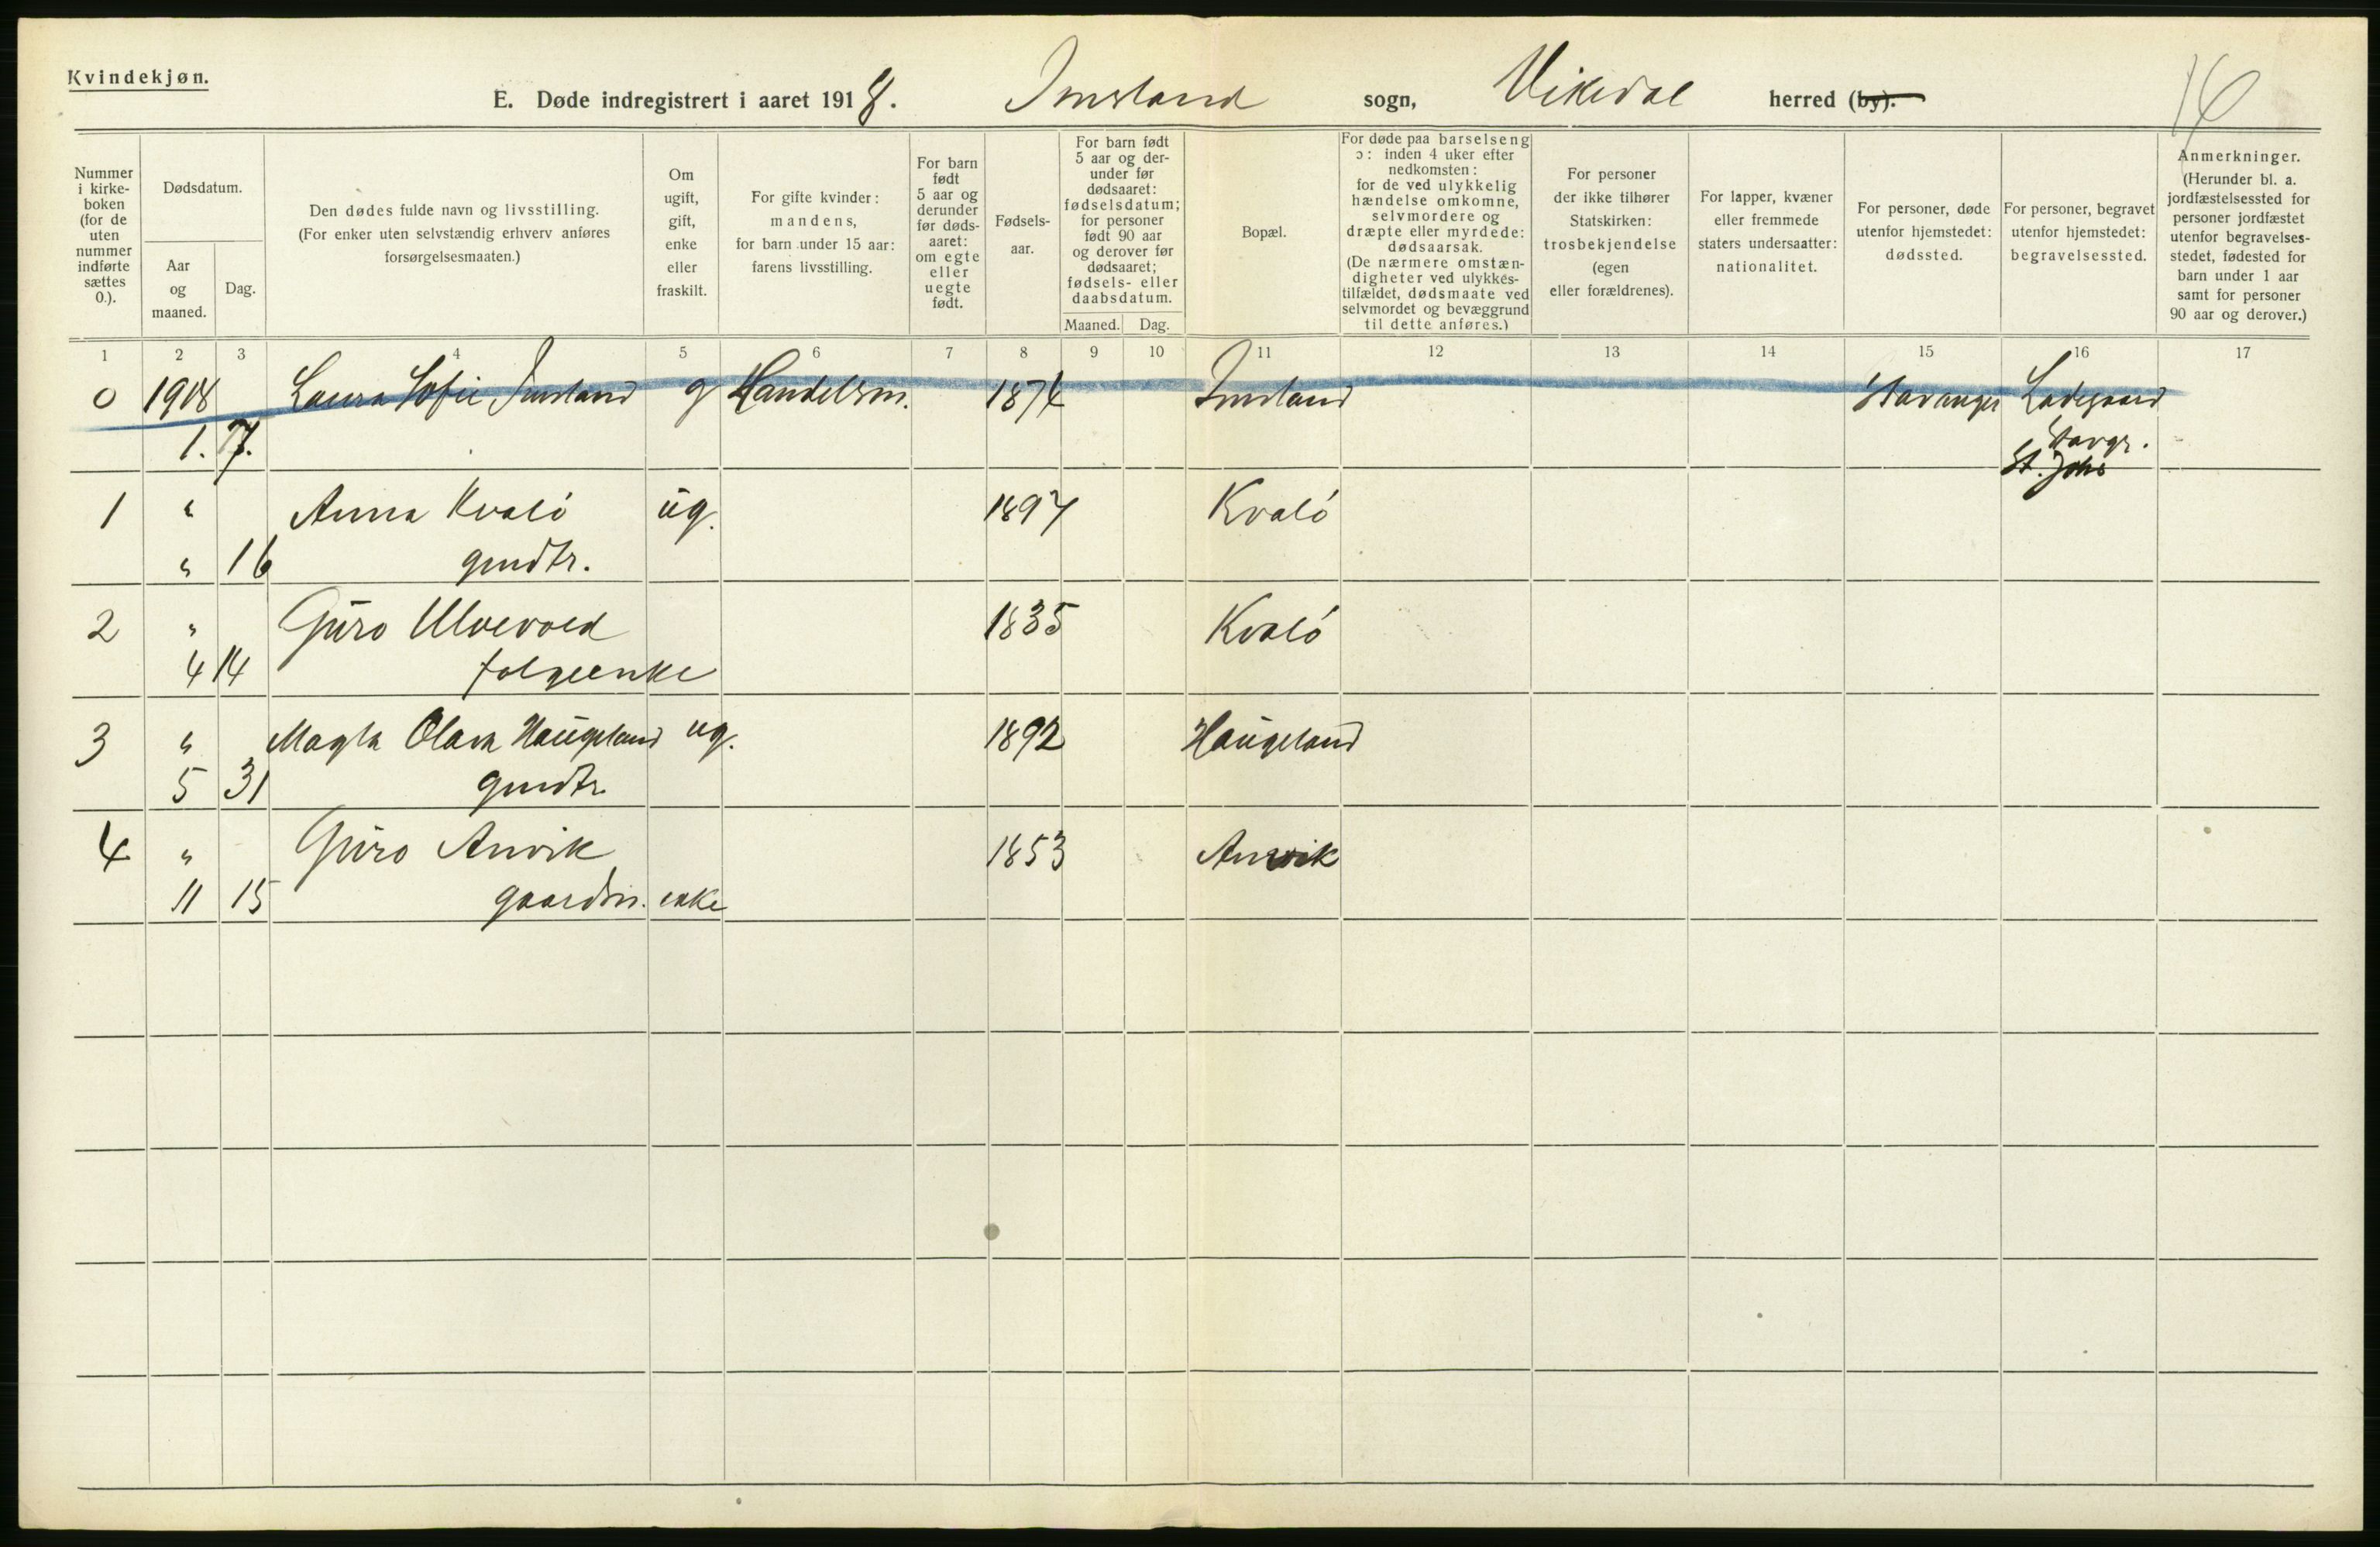 Kvindekjøn.
E. Døde indregistrert i aaret 1918. Imsland sogn, Vikedal herred (by).
16
Nummer i kirkeboken (for de uten nummer indførte sættes 0.).
Dødsdatum.
Aar og maaned.
Dag.
Den dødes fulde navn og livsstilling.
(For enker uten selvstændig erhverv anføres forsørgelsesmaaten.)
Om ugift, gift, enke eller fraskilt.
For gifte kvinder: mandens, for barn under 15 aar: farens livsstilling.
For barn født 5 aar og derunder før dødsaaret: om egte eller uegte født.
Fødselsaar.
For barn født 5 aar og derunder før dødsaaret: fødselsdatum; for personer født 90 aar og derover før dødsaaret; fødsels- eller daabsdatum.
Maaned. Dag.
Bopæl.
For døde paa barselseng ɔ: inden 4 uker efter nedkomsten: for de ved ulykkelig hændelse omkomne, selvmordere og dræpte eller myrdede: dødsaarsak. (De nærmere omstændigheter ved ulykkestilfældet, dødsmaate ved selvmordet og bevæggrund til dette anføres.)
For personer der ikke tilhører Statskirken: trosbekjendelse (egen eller forældrenes).
For lapper, kvæner eller fremmede staters undersaatter: nationalitet.
For personer, døde utenfor hjemstedet: dødssted.
For personer, begravet utenfor hjemstedet: begravelsessted.
Anmerkninger. (Herunder bl. a. jordfæstelsessted for personer jordfæstet utenfor begravelsesstedet, fødested for barn under 1 aar samt for personer 90 aar og derover.)
1 2 3 4 5 6 7 8 9 10 11 12 13 14 15 16 17
0 1918 Laura Sofie Imsland g Handelsm. 1874 Imsland Stavanger Ladegaard
1. 7. Stavgr.
St. Johs
1 " Anna Kvaló ug. 1897 Kvaló
" 16 gmdtr.
2 " Guro Ulvevoed 1835 Kvaló
4 14 folgeenke
3 " Magla Olava Haugeland ug. 1892 Haugeland
5 31 gmdtr
4 " Guro Anvik 1853 Anvik
11 15 gaardm. enke